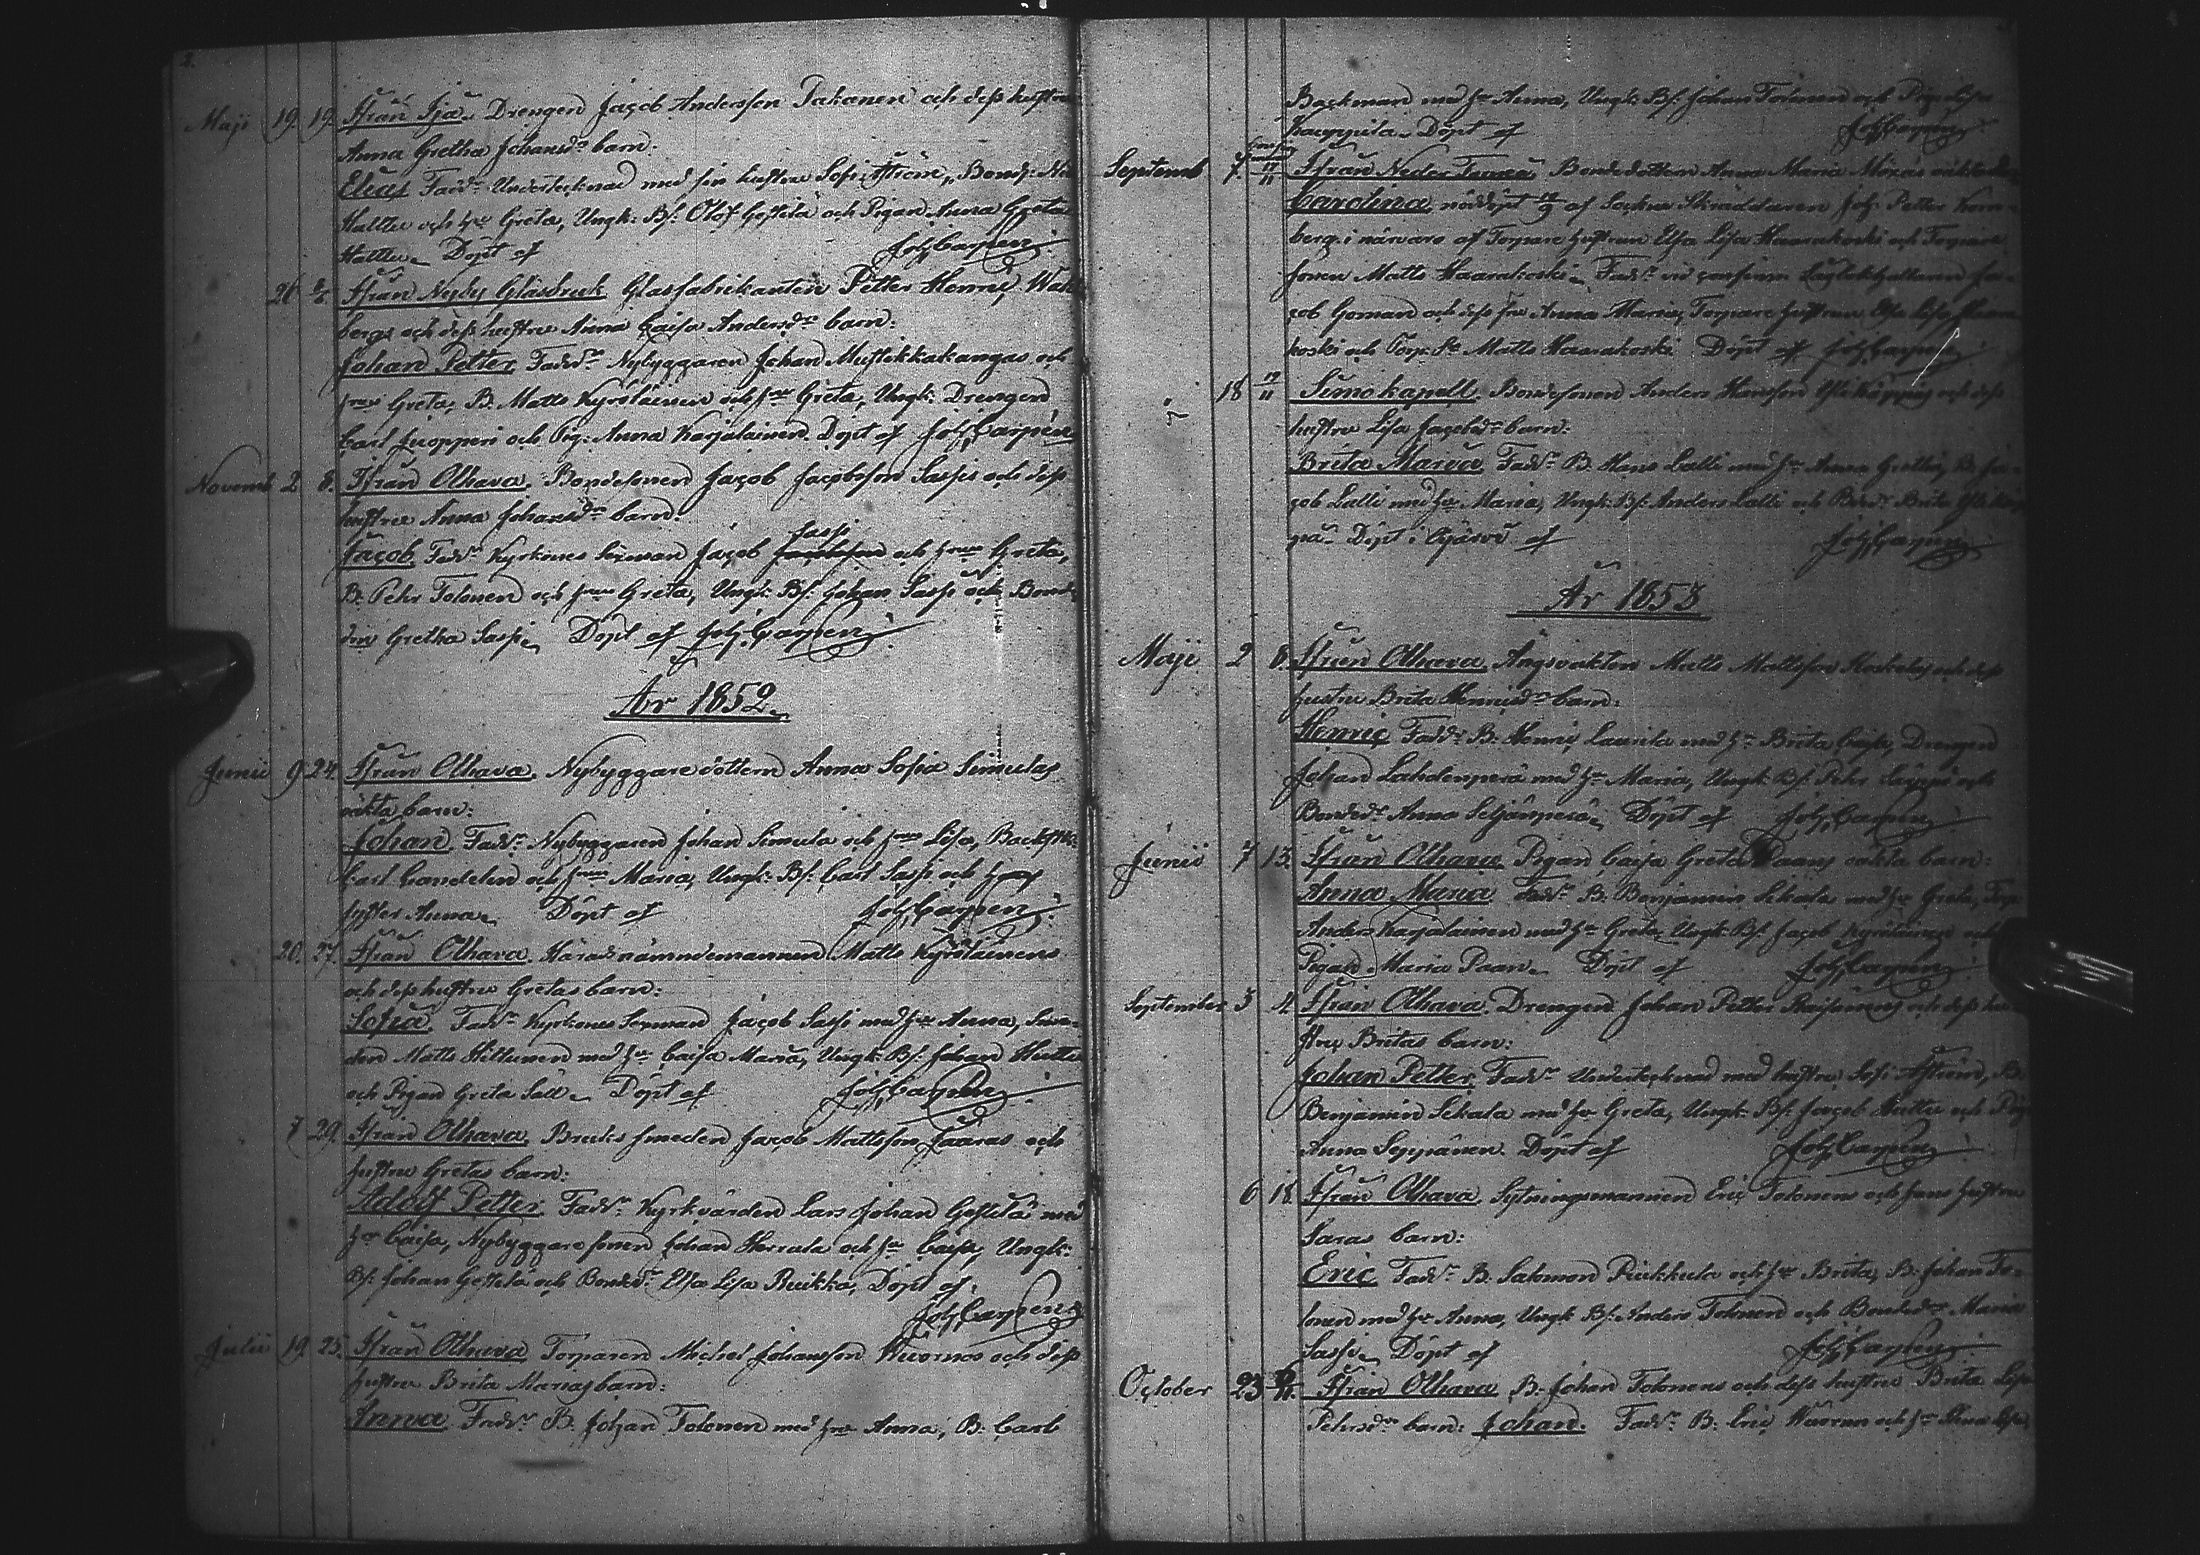 2.
Maji 19 19. Ifrån Ijå. Drengen Jacob Andersson Takanen och dess hustru
Anna Gretha Johansdr barn:
Elias Faddr Undertecknad med sin hustru Sofi Åström, Bond:
Hutttu och hu Greta, Ungk: Bs: Olof Gestilä och Pigan Anna Greta
Huttu. Döpt af Joh Carpen
26 Ifrån Nyby Glasbruk Glasfabrikanten Petter Henric Wah
bergs och dess hustru Anna Caisa Andersdr barn:
Johan Petter Faddr Nybyggaren Johan Mustikkakangas och
hru Greta, B. Matts Kyröläinen och hru Greta, Ungk: Drengen
Carl Juopperi och Pig: Anna Karjalainen. Döpt af Joh Carpén
Novemb 2 8. Ifrån Olhava Bondesonen Jacob Jacobsson Sassis och dess
hustru Anna Johansdr barn:
Sassi
Jacob Faddr Kyrkones Sexman Jacob Jacobsson och hru Greta,
B: Pehr Tolonen och hru Greta, Ungk: Bs: Johan Sassi och Bond
Gretha Sassi. Döpt af Joh Carpen
År 1852.
Junii 9 24. Ifrån Olhava, Nybyggaredottern Anna Sofia Simulas
oäkta barn:
Johan Faddr Nybyggaren Johan Simula och hru Lisa, Backst
Carl Candelin och hru Maria, Ungk: Bs: Carl Sassi och
syster Anna. Döpt af Joh Carpen
20. 27. Ifrån Olhava, Häradsnämndemannen Matts Kyröläinens
och dess hustru Gretas barn:
Sofia Faddr Kyrkones Sexman Jacob Sassi med hru Anna,
Matts Hiltunen med hu Caisa Maria, Ungk: Bs: Johan Huttu
och Pigan Greta Sall. Döpt af Joh Carpen
7 29. Ifrån Olhava, Bruks smeden Jacob Mattsson Saaras och
hustru Gretas barn:
Adolf Petter Faddr Kyrkvärden Lars Johan Gestilä med
hr Caisa, Nybyggaresonen Johan Herrala och hu Caisa, Ungk:
Bs: Johan Gestilä och Bondedr Elsa Lisa Buikka, Döpt af
Joh Carpen
Julii 19. 25. Ifrån Olhava Torparen Michel Johansson Wuornos och dess
hustru Brita Marias barn:
Anna Faddr B. Johan Tolonen med hru Anna, B: Carl
Backman med hr Anna, Ungk: Bs: Johan Tolonen och Pigan Lisa
Kauppila. Döpt af Joh Carpen
Septemb 7 Ifrån Neder Torneå Bondedottern Anna Maria oäkta
Carolina, nöddöpt af Sockne Skräddaren Joh: Petter Korn-
berg i närvaro af Torpare hustrun Elsa Lisa Haarakoski och Torpare
sonen Matts Haarakoski. Faddr vid
cob Goman och dess hu Anna Maria, Torpare hustrun Elsa Lisa
koski och Torp: Matts Haarakoski Döpt af Joh Carpen
18 Simo kapell. Bondesonen Anders Hansson och dess
hustru Lisa Jacobsdr barn:
Brita Maria Faddr B. Hans Lalli med hr Anna Greta, B. Ja-
cob Lalli med hu Maria, Ungk: Bs: Anders Lalli och Bdr Brita
Döpt i af Joh Carpen
År 1853
Maji 2 8. Ifrån Olhava Ängsvakten Matts Mattsson och dess
hustru Brita Henricsdr barn:
Henric Faddr B: Henric Laurila med hr Brita Caisa, Drengen
Johan Lahdenperä med hr Maria, Ungk: Bs: Pehr och
Bondedr Anna Seljänperä. Döpt af Joh Carpen
Junii 7 13. Ifrån Olhava Pigan Caisa Greta Paans oäkta barn:
Anna Maria Faddr B: Benjamin Sikala med hr Greta, Torp
Anders Karjalainen med hr Greta, Ungk: Bs: Jacob Kyröläinen och
Pigan Maria Paan. Döpt af Joh Carpen
September 3 4. Ifrån Olhava. Drengen Johan Petter och dess hu
stru Britas barn:
Johan Petter Faddr Undertecknad med hustru Sofi Åström, B.
Benjamin Sikala med hr Greta, Ungk: Bs: Jacob Huttu och Pig
Anna Seppänen. Döpt af Joh Carpen
6 18. Ifrån Olhava. Sytningsmannen Eric Tolonens och hans hustru
Saras barn:
Eric Faddr B. Salomon Puikkula och hr Brita, B: Johan To-
lonen med hr Anna, Ungk: Bs: Anders Tolonen och Bondedr Maria
Sassi. Döpt af Joh Carpen
October 23 Ifrån Olhava B. Johan Tolonens och dess hustru Brita Lisa
Pehrsdr barn: Johan. Faddr B: Eric och hr